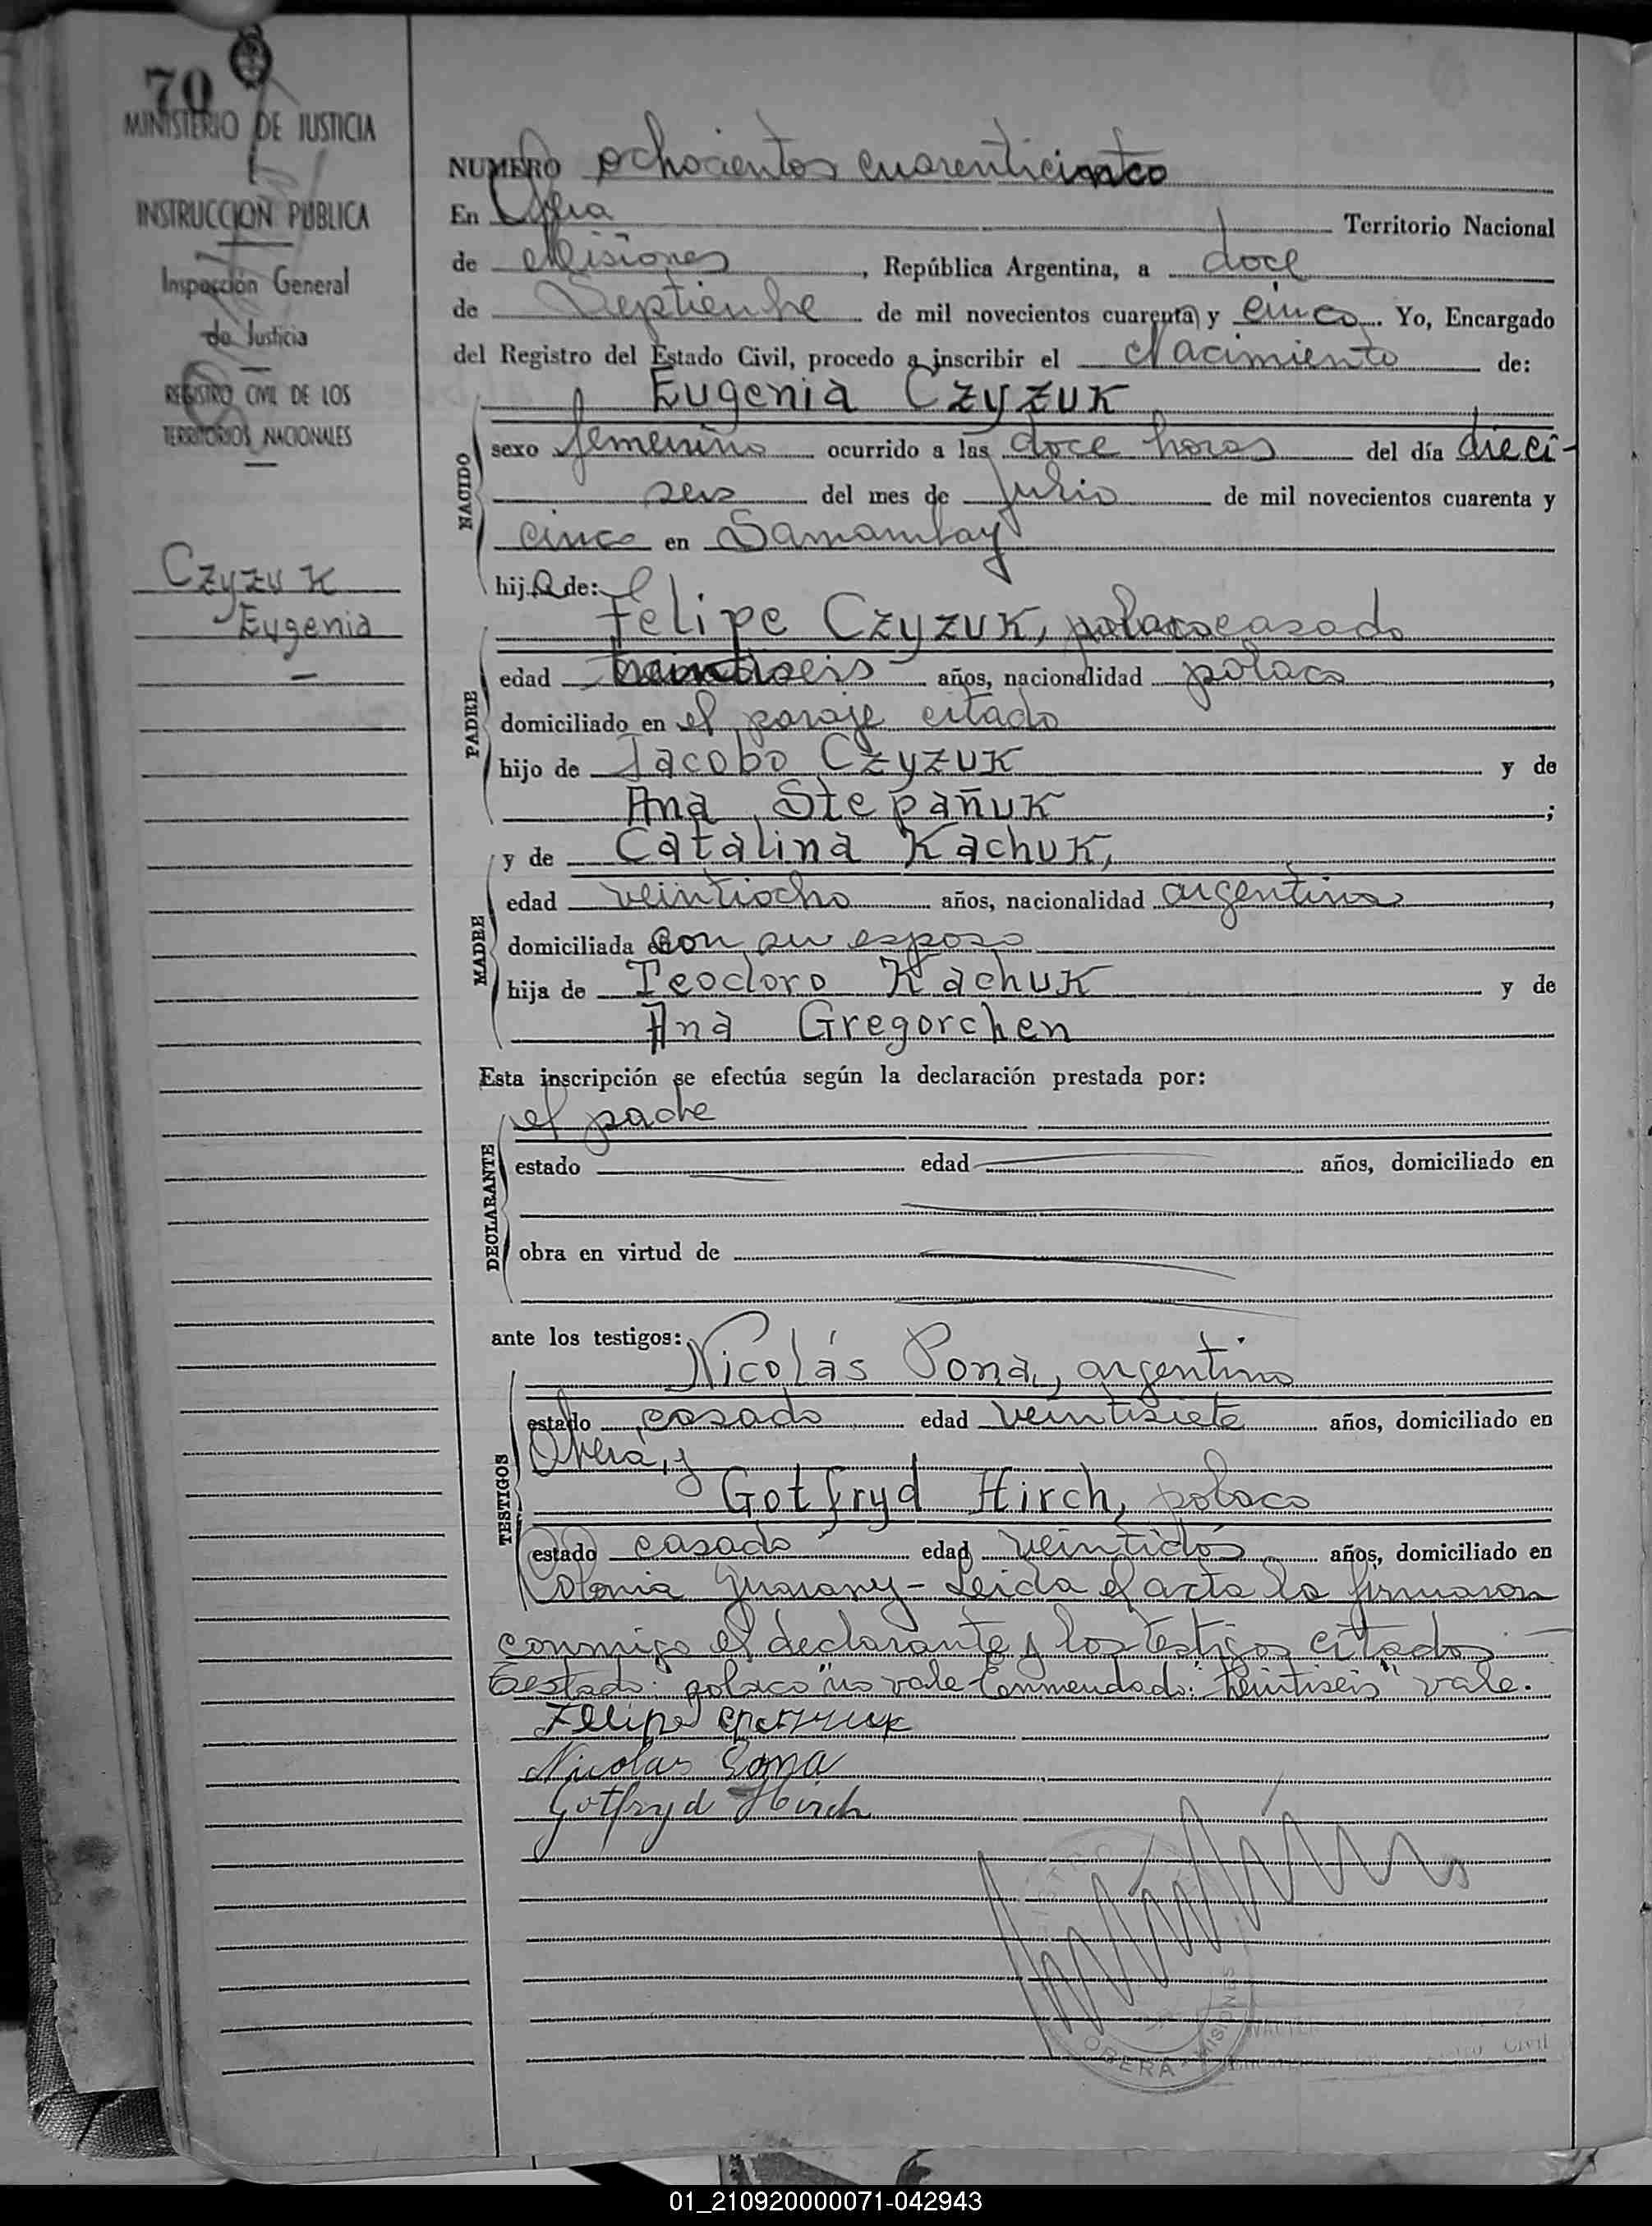 70
MINISTERIO DE JUSTICIA
INSTRUCCION PUBLICA
Inspección General
de Justicia
REGISTRO CIVIL DE LOS
TERRITORIOS NACIONALES
Czyzuk
Eugenia
NUMERO ochocientos cuarenticinco
En Obera Territorio Nacional
de Misiones, República Argentina, a doce
de Septiembre de mil novecientos cuarenta y cinco. Yo, Encargado
del Registro del Estado Civil, procedo a inscribir el Nacimiento de:
Eugenia Czyzuk
NACIDO
sexo femenino ocurrido a las doce horas del día dieci-
seis del mes de Julio de mil novecientos cuarenta y
cinco en Samambay
hija de:
PADRE
Felipe Czyzuk, polaco casado
edad treintiseis años, nacionalidad polaco,
domiciliado en el paraje citado
hijo de Jacobo Czyzuk y de
Ana Stepañuk;
MADRE
y de Catalina Kachuk,
edad veintiocho años, nacionalidad argentina,
domiciliada con su esposo
hija de Teodoro Kachuk y de
Ana Gregorchen
Esta inscripción se efectúa según la declaración prestada por:
DECLARANTE
el padre
estado edad años, domiciliado en
obra en virtud de
ante los testigos:
TESTIGOS
Nicolás Sona, argentino
estado casado edad veintisiete años, domiciliado en
Obera, y
Gotfryd Hirch, polaco
estado casado edad veintidós años, domiciliado en
Colonia Guarany - Leida el acta la firmaron
conmigo el declarante y los testigos citados -
Testado: polaco "no vale Enmendado: "treintiseis" vale.
Felipe
Nicolas Sona
Gotfryd Hirch
OBERA - MISIONES
Civil
01_210920000071-042943